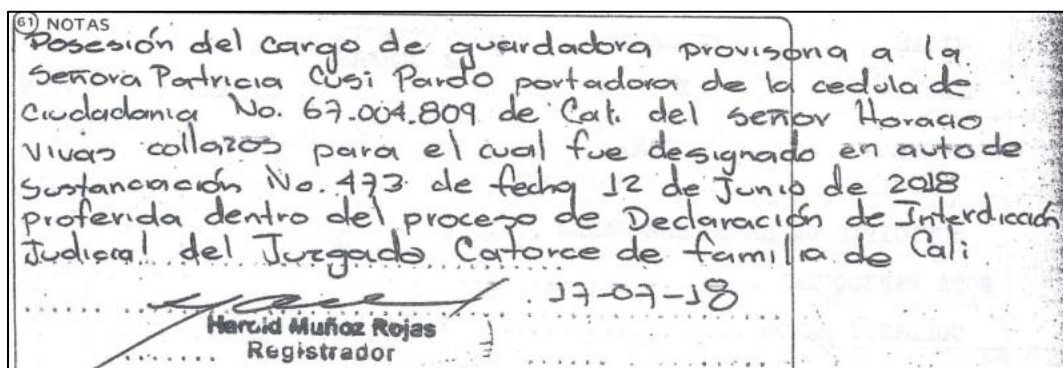 61) NOTAS
Posesión del cargo de guardadora provisoria a la
Señora Patricia Cusi Pardo portadora de la cedula de
Ciudadania No. 67.004.809 de Cali del señor Horacio
Vivas collazos para el cual fue designado en auto de
Sustanciación No. 473 de fecha 12 de Junio de 2018
proferida dentro del proceso de Declaración de Interdicción
Judicial del Juzgado Catorce de familia de Cali
17-07-18
Harold Muñoz Rojas
Registrador